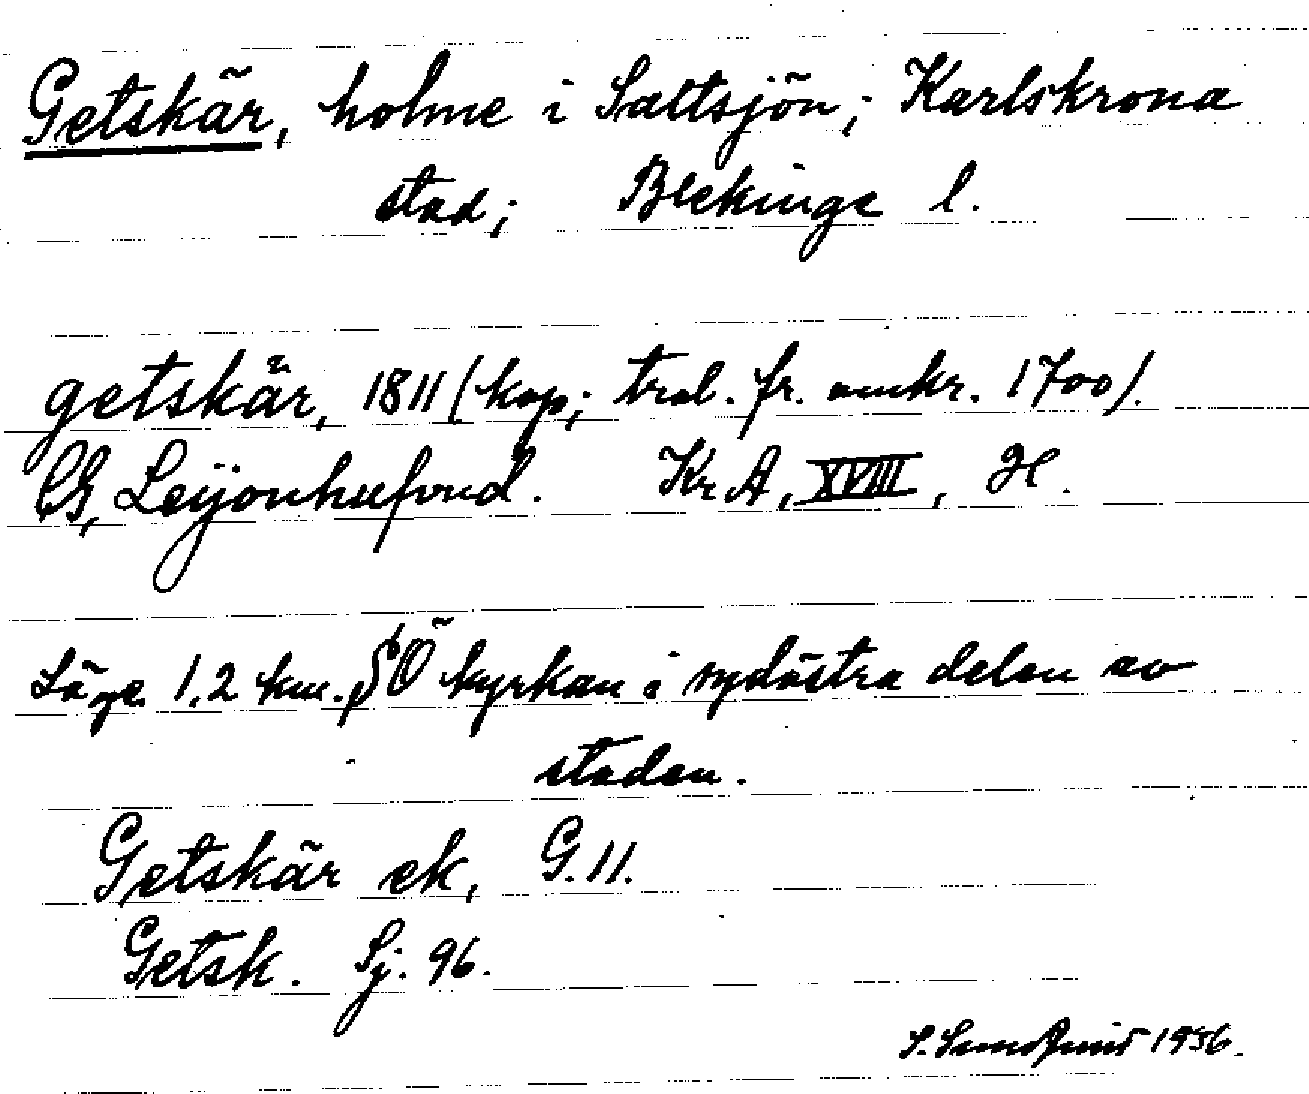 Getskär, holme i Saltsjön; Karlskrona
stad; Blekinge l.
getskär, 1811 (kop; trol. fr. omkr. 1700).
CG, Leijonhufvud. KrA, XVIII, H.
Läge 1,2 km. SÖ kyrkan i sydöstra delen av
staden.
Getskär ek, G.11.
Getsk. Sj. 96.
S. 1956.